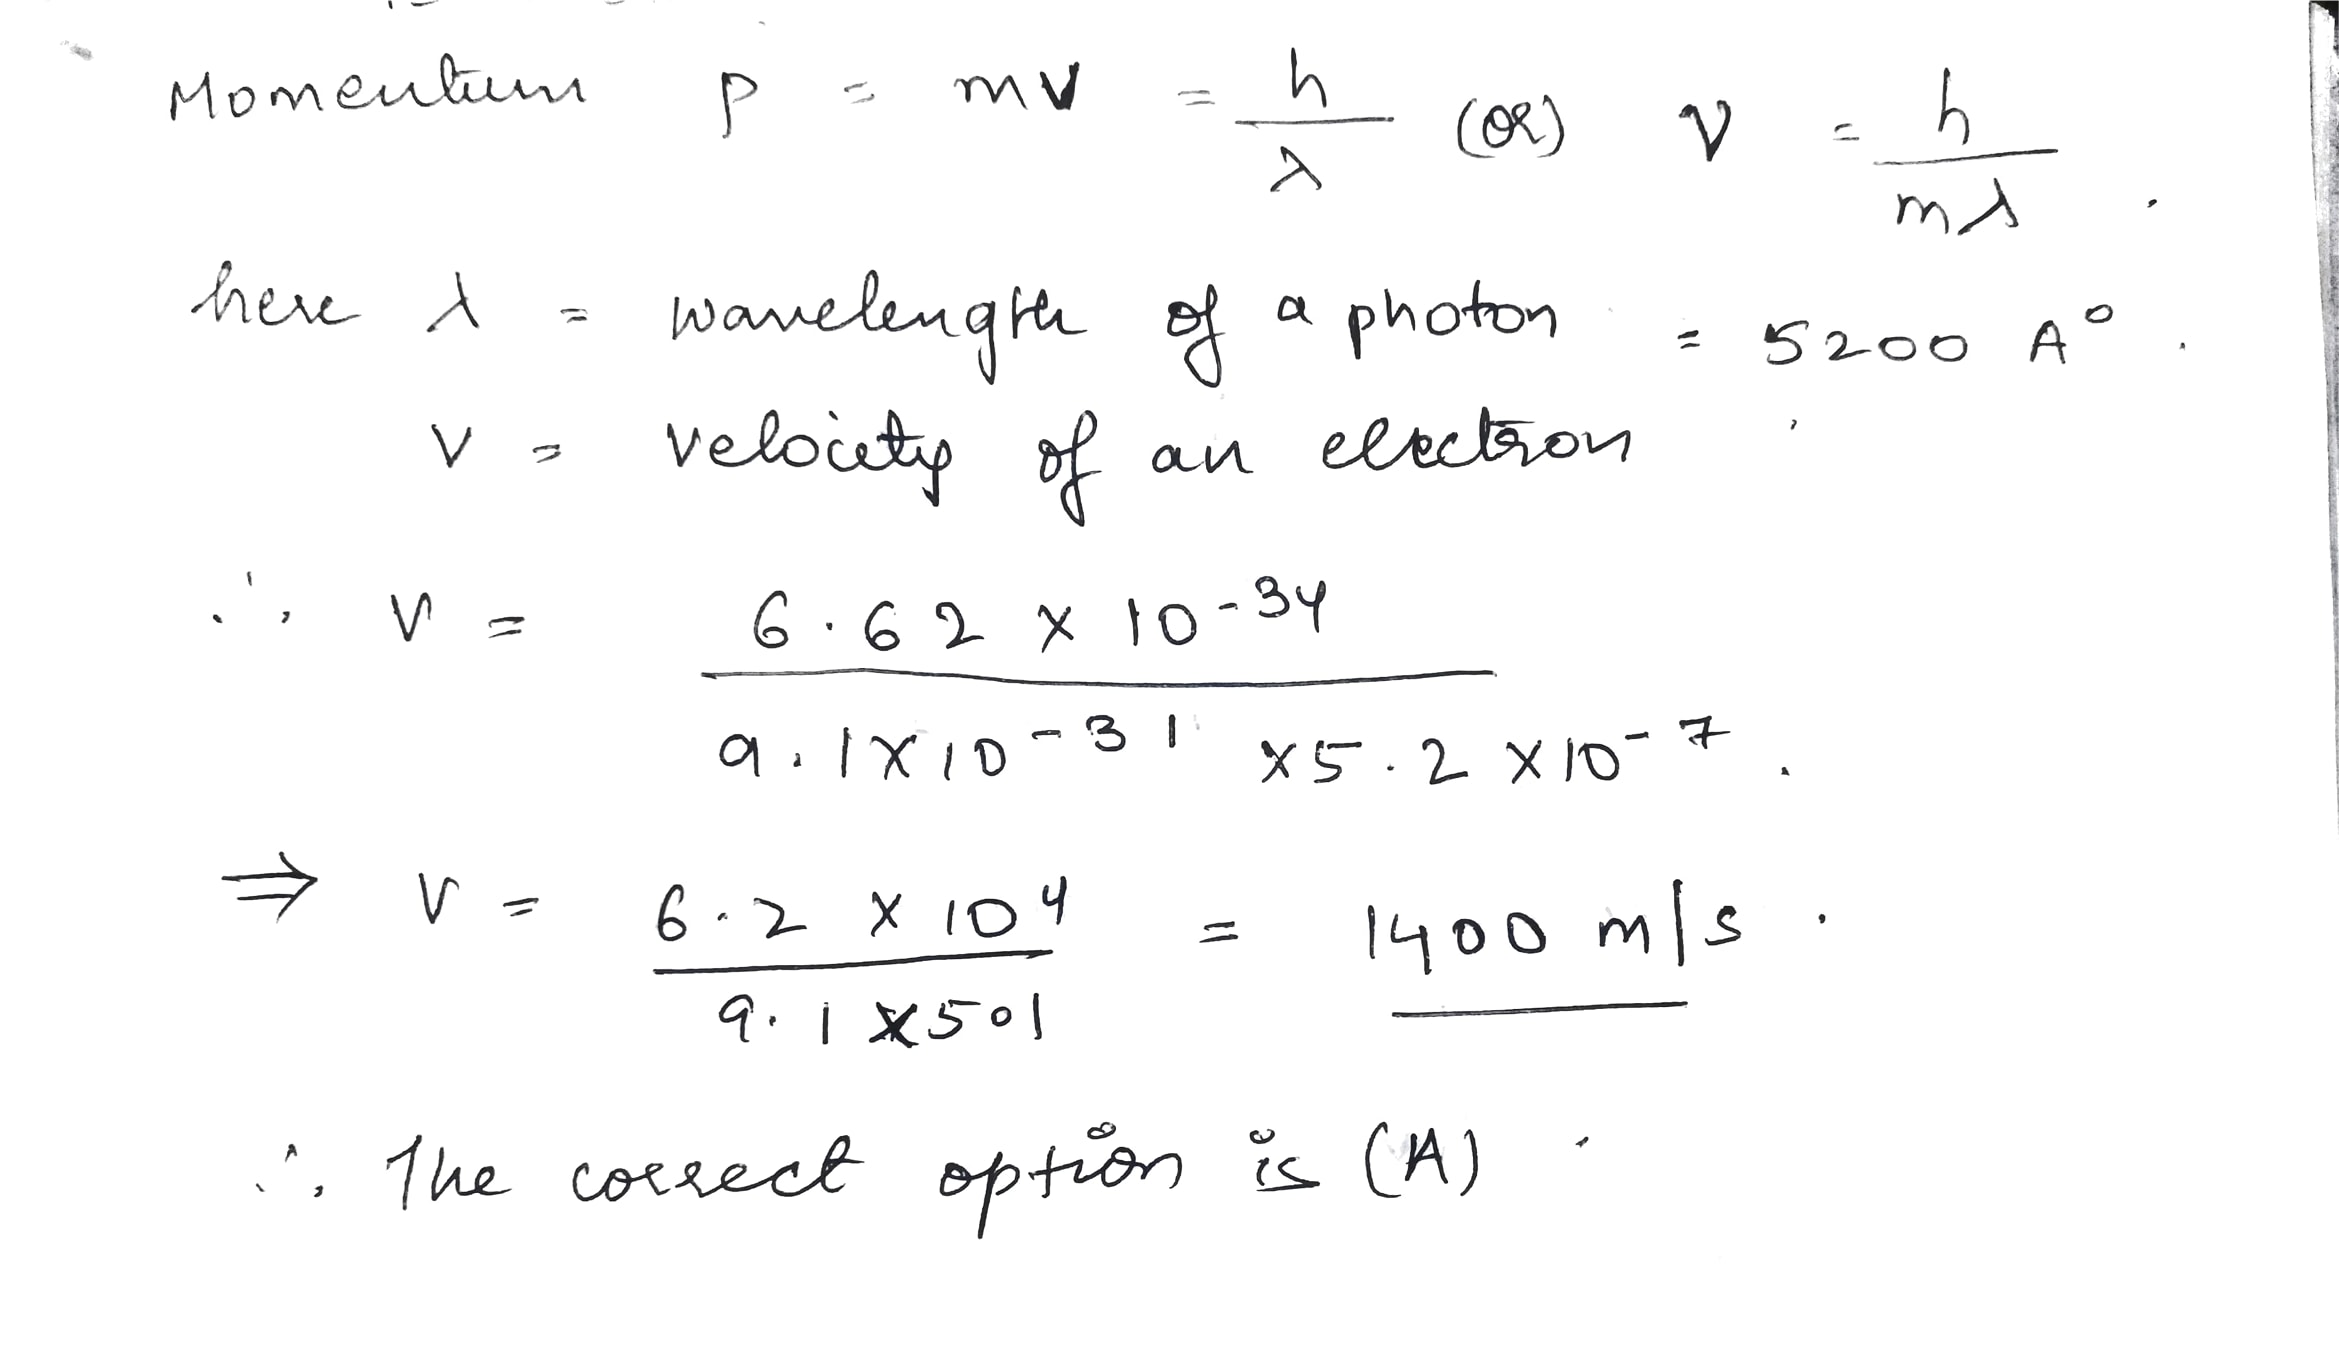 Momentum p = mv = h/λ (or) v = h/mλ .
here λ = wavelength of a photon = 5200 A° .
v = velocity of an electron
∴ v = 6.62 x 10^-34 / 9.1 x 10^-31 x 5.2 x 10^-7 .
⇒ v = 6.2 x 10^4 / 9.1 x 501 = 1400 m/s .
∴ The correct option is (A) .